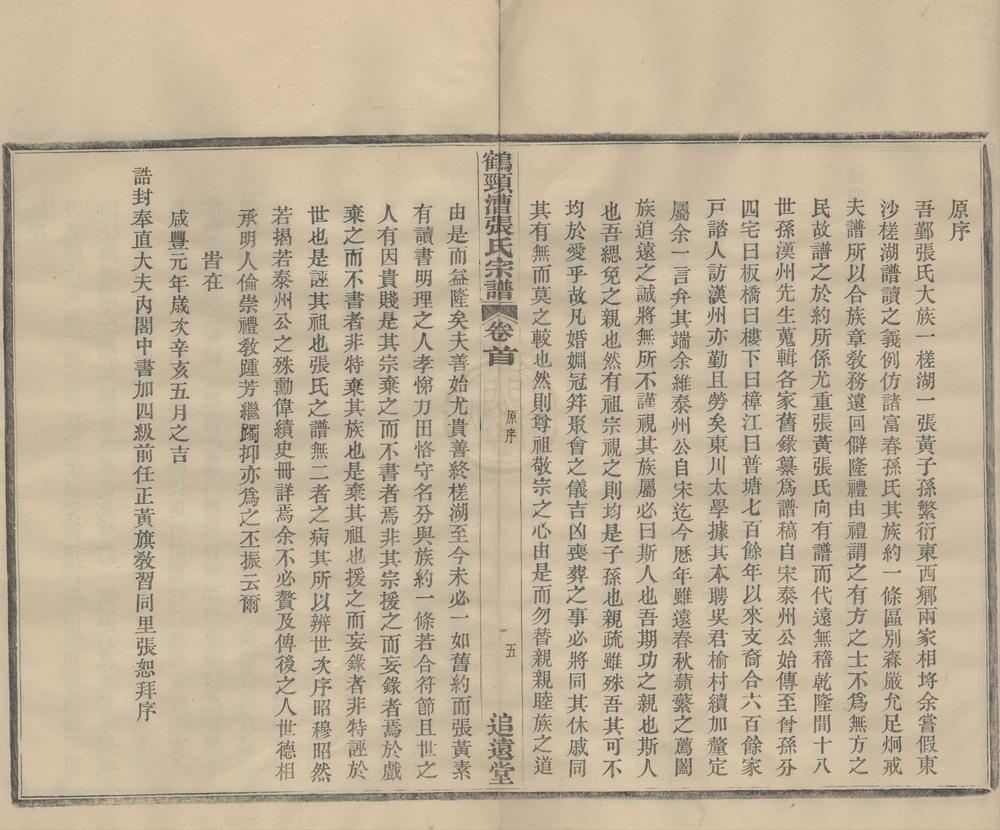 原序
吾鄞張氏大族一槎湖一張黃子孫繁衍東西鄉兩家相埒余嘗假東
沙槎湖譜讀之義例仿諸富春孫氏其族約一條區別森嚴允足炯戒
夫譜所以合族章教務遠回僻隆禮由禮謂之有方之士不爲無方之
民故譜之於約所係尤重張黃張氏向有譜而代遠無稽乾隆間十八
世孫漢州先生蒐輯各家舊錄纂爲譜稿自宋泰州公始傳至曾孫分
四宅曰板橋曰樓下曰樟江曰普塘七百餘年以來支裔合六百餘家
戸諮人訪漢州亦勤且勞矣東川太學據其本聘吳君榆村續加釐定
屬余一言弁其端余維泰州公自宋迄今歷年雖遠春秋蘋蘩之薦闔
族追遠之誠將無所不謹視其族屬必曰斯人也吾期功之親也斯人
也吾緦免之親也然有祖宗視之則均是子孫也親疏雖殊吾其可不
均於愛乎故凡婚姻冠筓聚會之儀吉凶喪葬之事必將同其休戚同
其有無而莫之較也然則尊祖敬宗之心由是而勿替親親睦族之道
鶴頸漕張氏宗譜 卷首 原序 五 追遠堂
由是而益隆矣夫善始尤貴善終槎湖至今未必一如舊約而張黃素
有讀書明理之人孝悌力田恪守名分與族約一條若合符節且世之
人有因貴賤是其宗棄之而不書者焉非其宗援之而妄錄者焉於戲
棄之而不書者非特棄其族也是棄其祖也援之而妄錄者非特誣於
世也是誣其祖也張氏之譜無二者之病其所以辨世次序昭穆昭然
若揭若泰州公之殊勳偉績史冊詳焉余不必贅及俾後之人世德相
承明人倫崇禮敎踵芳繼躅抑亦爲之丕振云爾
旹在
咸豐元年歲次辛亥五月之吉
誥封奉直大夫內閣中書加四級前任正黃旗敎習同里張恕拜序